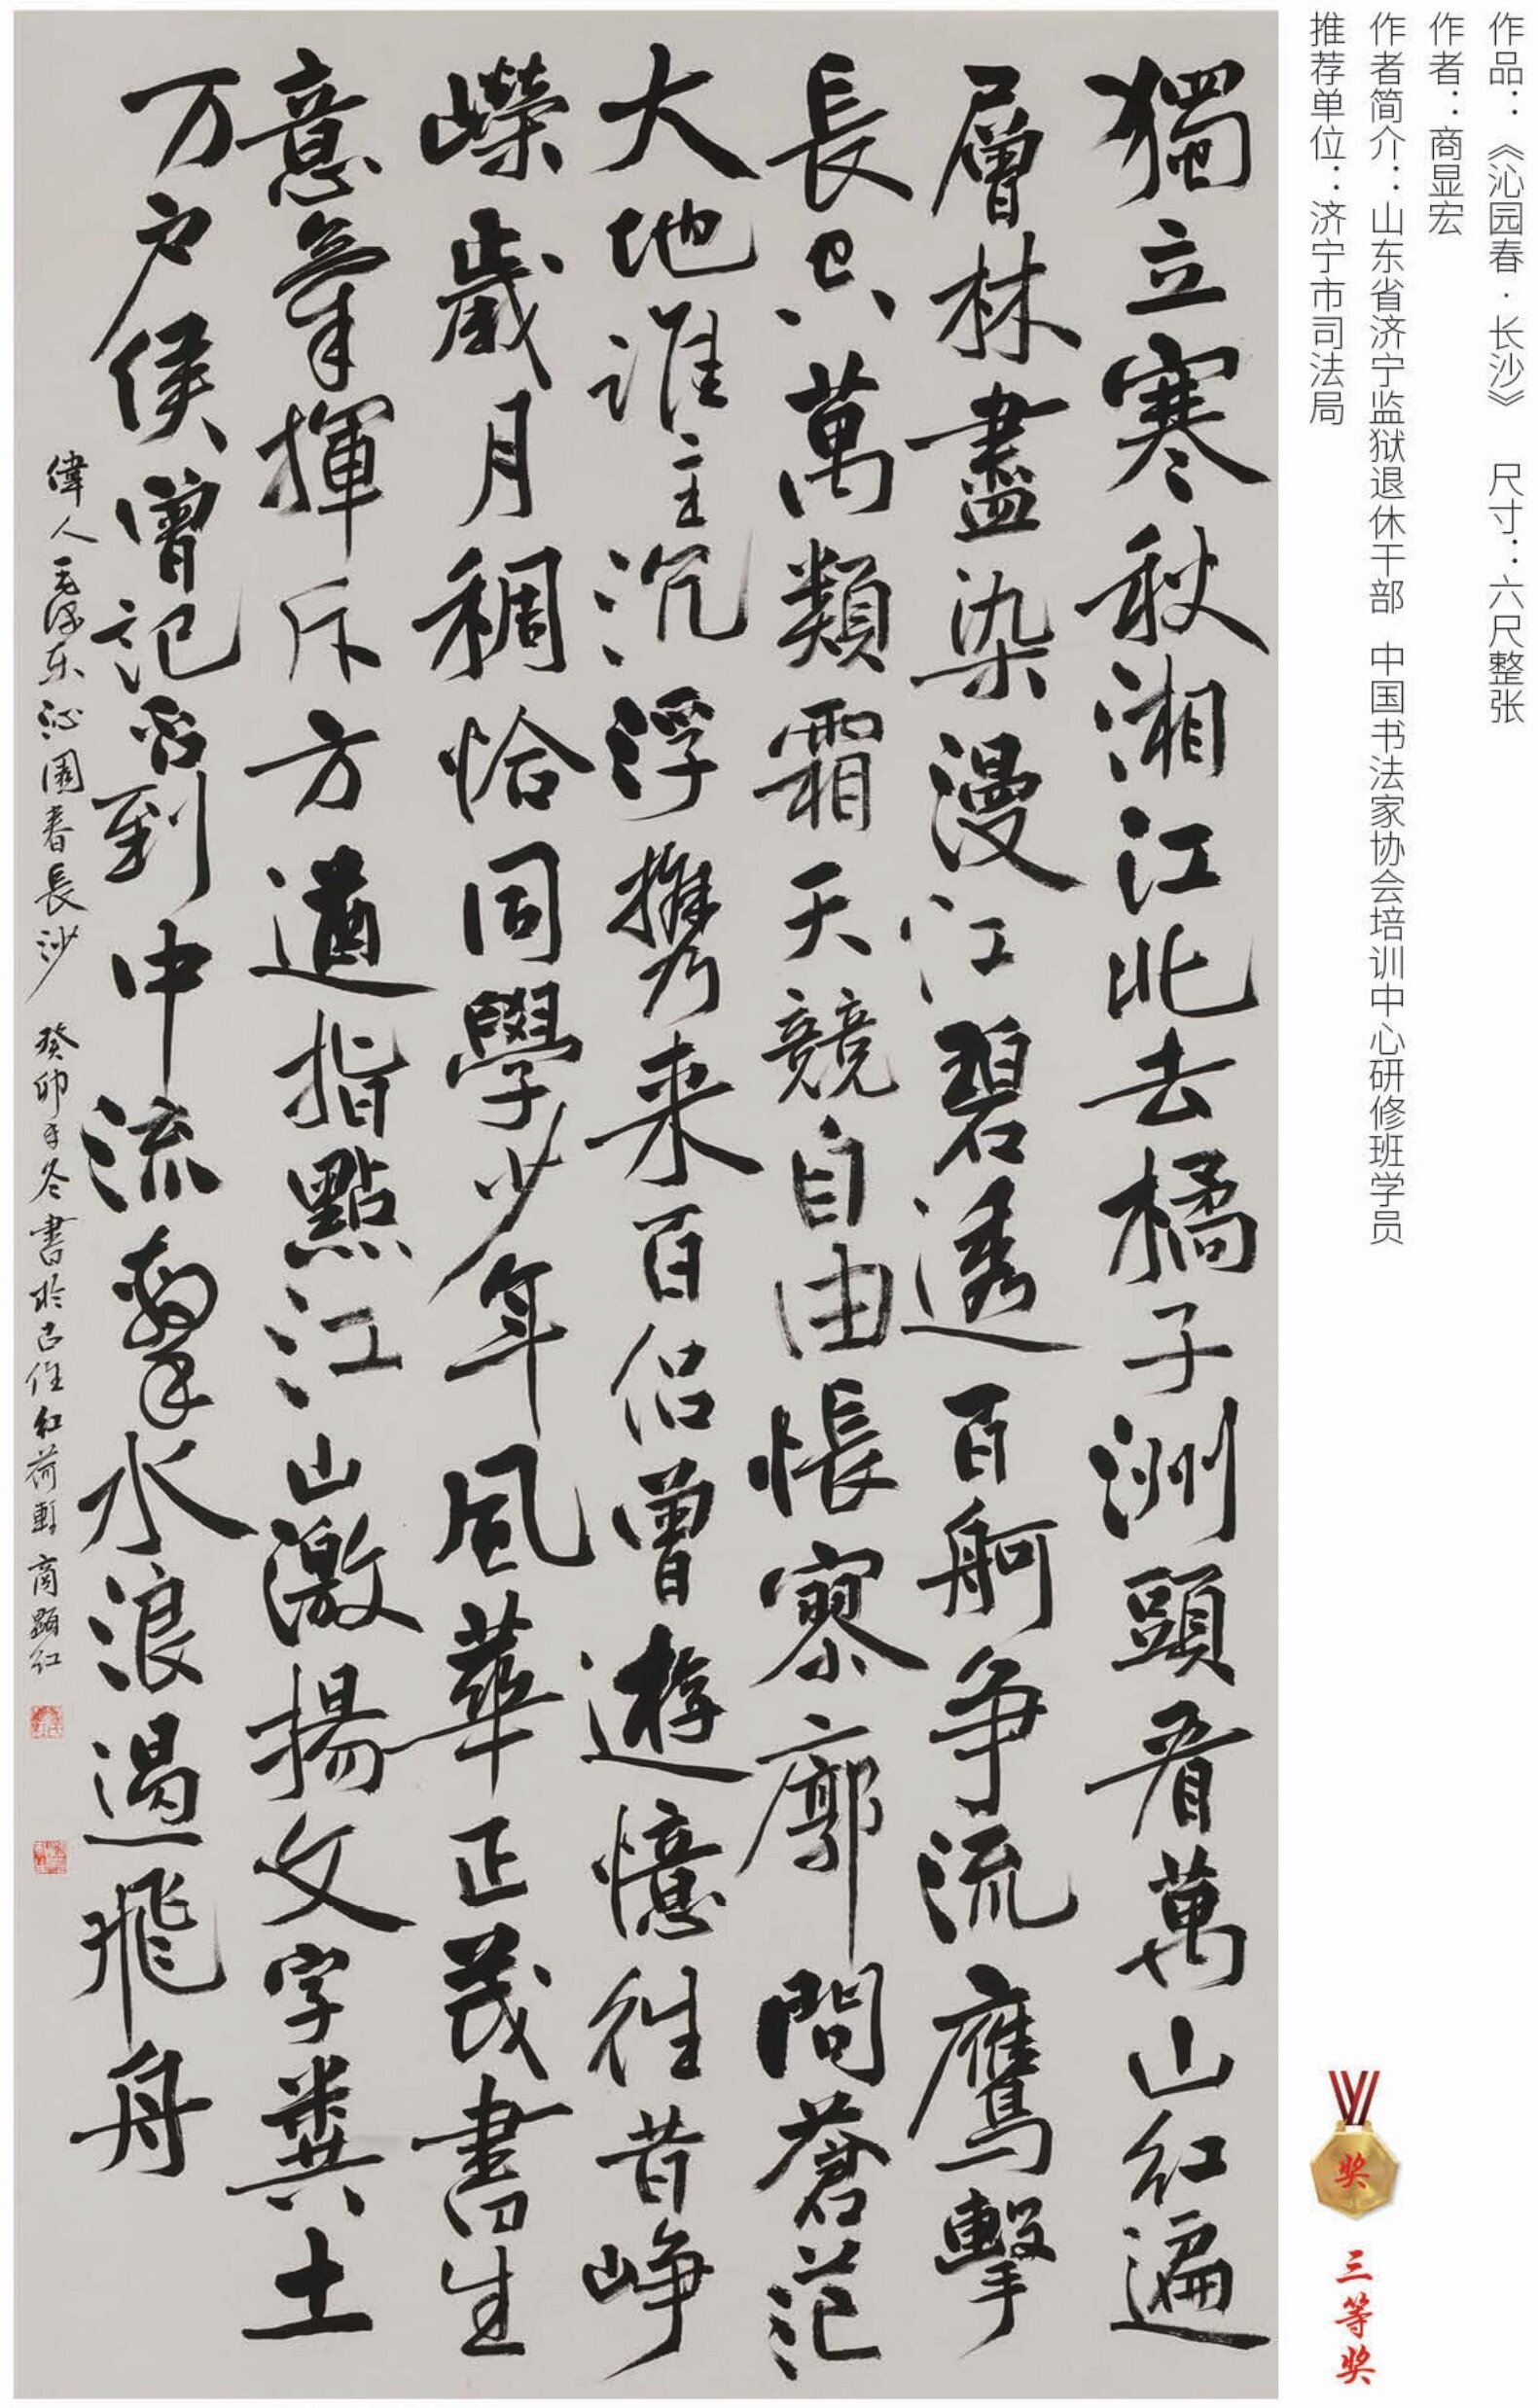 作品：《沁园春·长沙》 尺寸：六尺整张
作者：商显宏
作者简介：山东省济宁监狱退休干部 中国书法家协会培训中心研修班学员
推荐单位：济宁市司法局
奖
三等奖
獨立寒秋湘江北去橘子洲頭看萬山紅遍
層林盡染漫江碧透百舸争流鷹擊
長空萬類霜天競自由悵寥廓問蒼茫
大地誰主沉浮攜来百侣曾遊憶往昔峥
嶸歲月稠恰同學少年風華正茂書生
意氣揮斥方遒指點江山激揚文字糞土
万户侯曾記否到中流擊水浪遏飛舟
偉人毛澤东沁園春長沙 癸卯年冬書於古任紅荷軒 商顯红